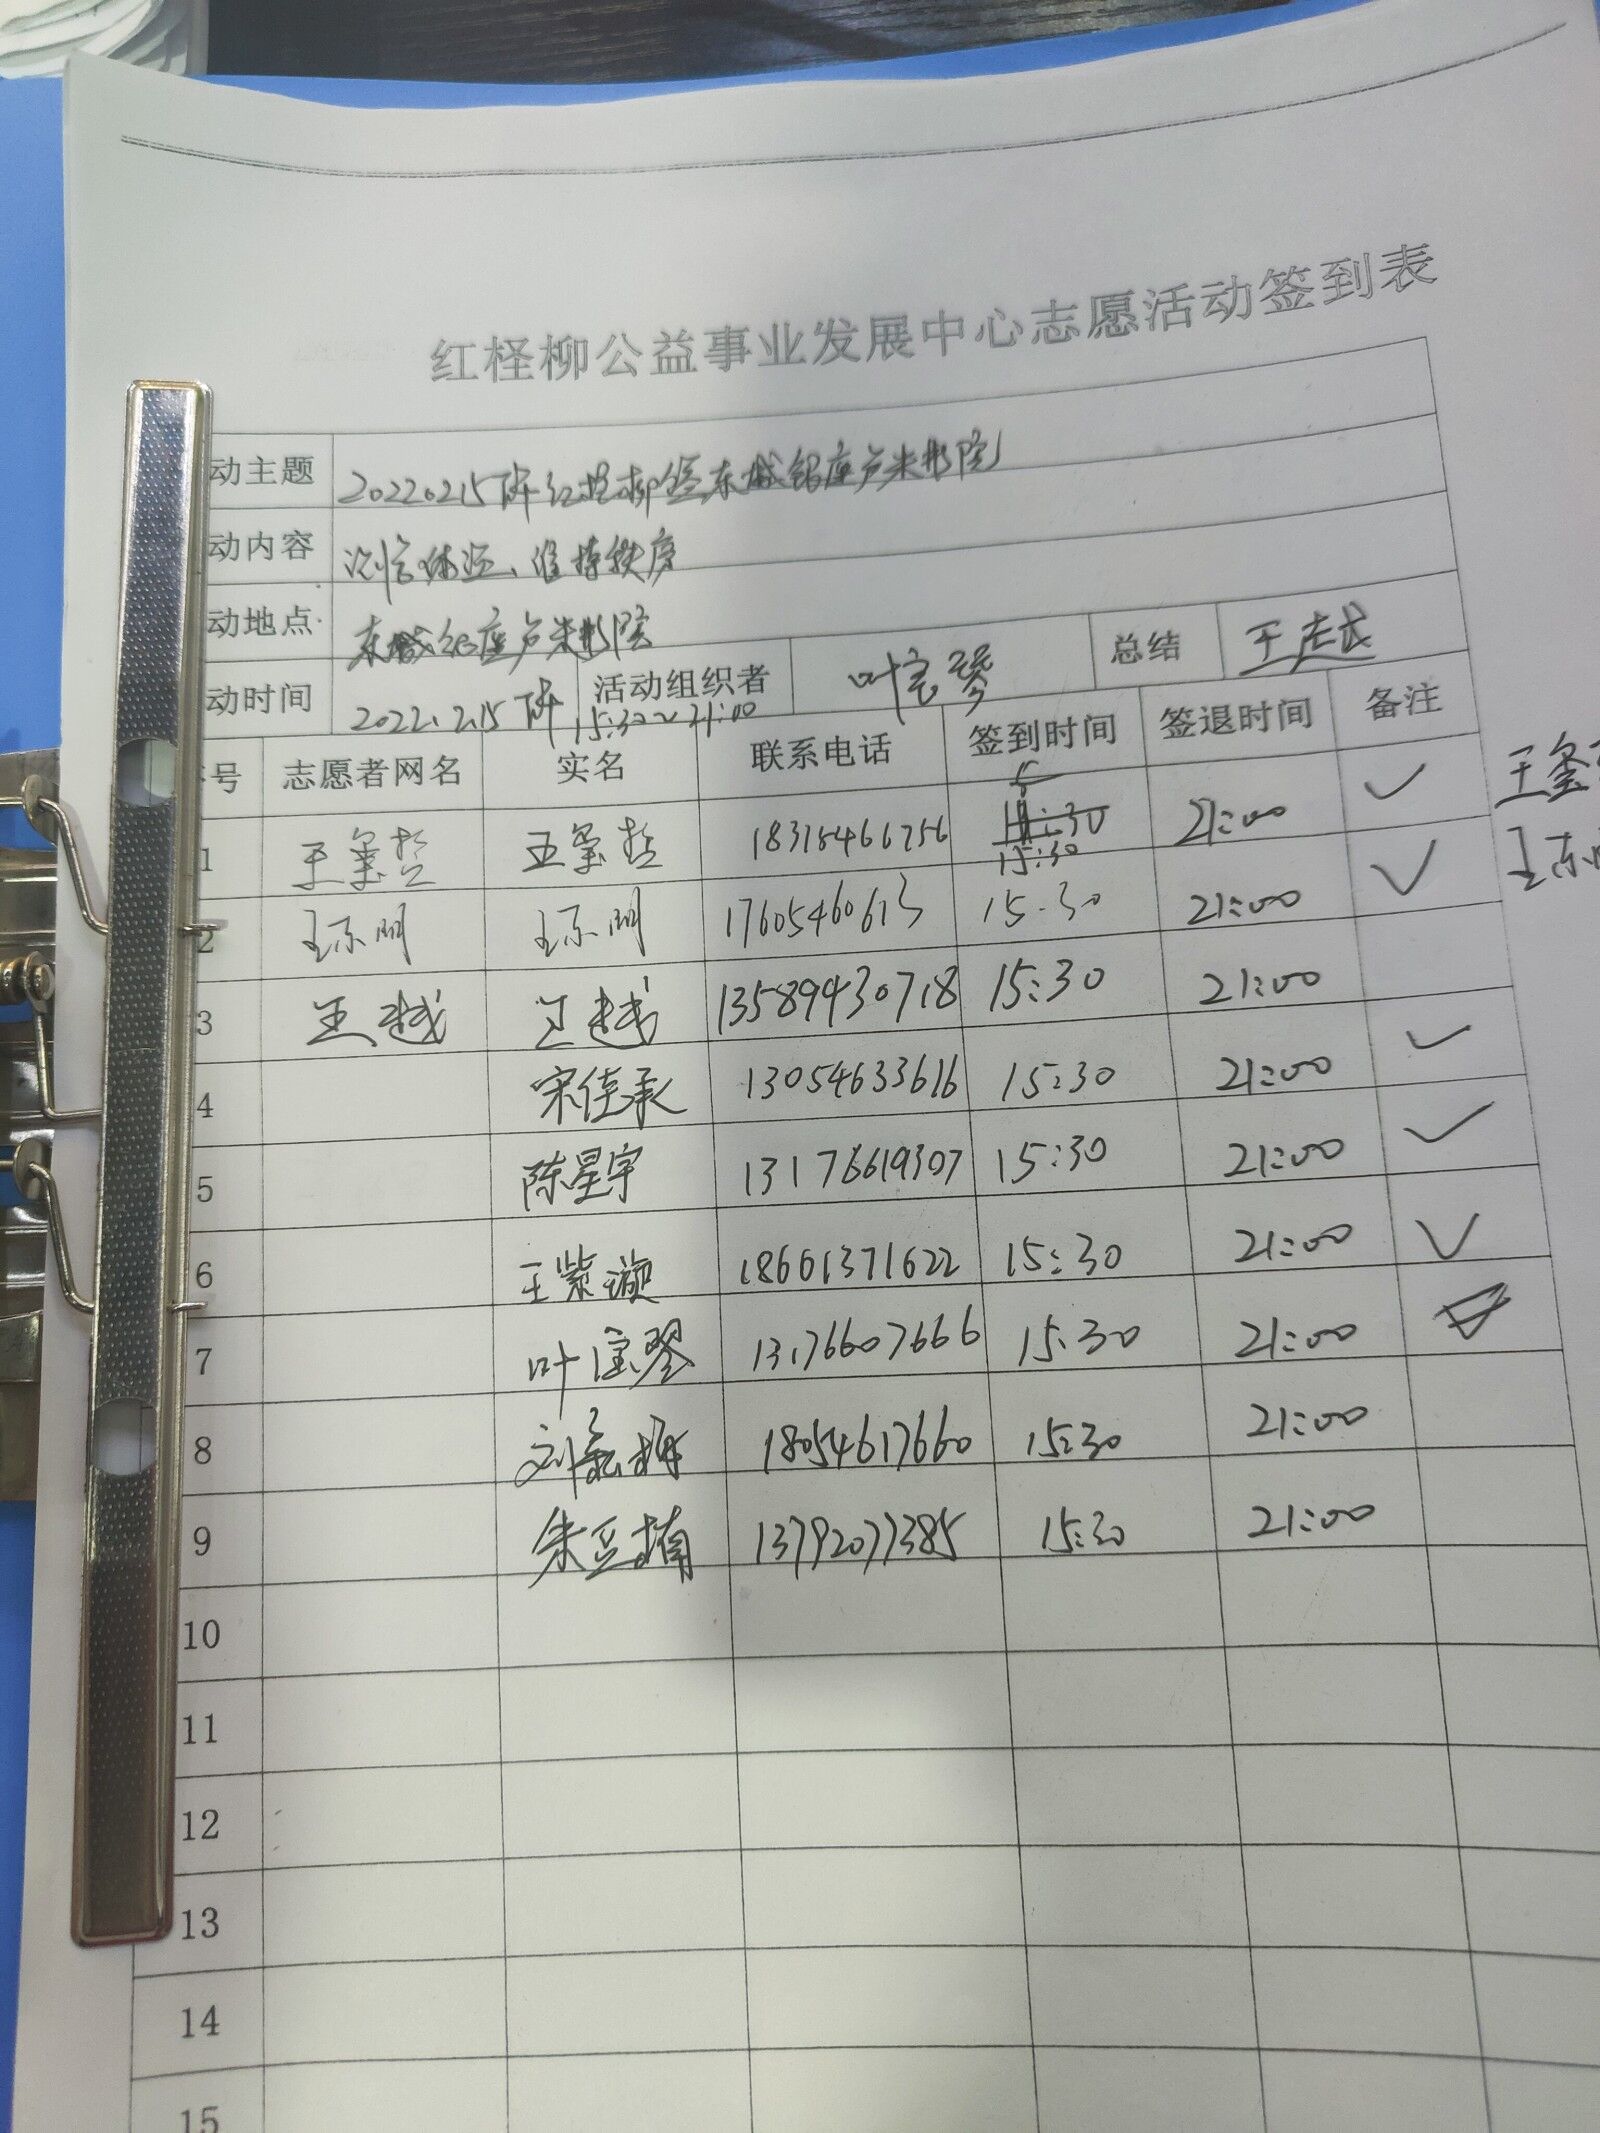 红柽柳公益事业发展中心志愿活动签到表
动主题 20220215下午红柽柳 东城银座卢米影院
动内容 测 体温、维持秩序
动地点 东城银座卢米影院
动时间 2022.2.15下午 15:30~21:00 活动组织者 叶宝琴 总结 王越
序号 志愿者网名 实名 联系电话 签到时间 签退时间 备注
1 王玺哲 王玺哲 18315466756 15:30 21:00 ✓ 王玺
2 王东明 王东明 17605460613 15:30 21:00 ✓ 王东
3 王越 王越 13589430718 15:30 21:00
4 宋佳承 13054633616 15:30 21:00 ✓
5 陈星宇 13176619307 15:30 21:00 ✓
6 王紫漩 18661371622 15:30 21:00 ✓
7 叶宝琴 13176607666 15:30 21:00
8 刘 梅 18054617660 15:30 21:00
9 朱 楠 13792077385 15:30 21:00
10
11
12
13
14
15